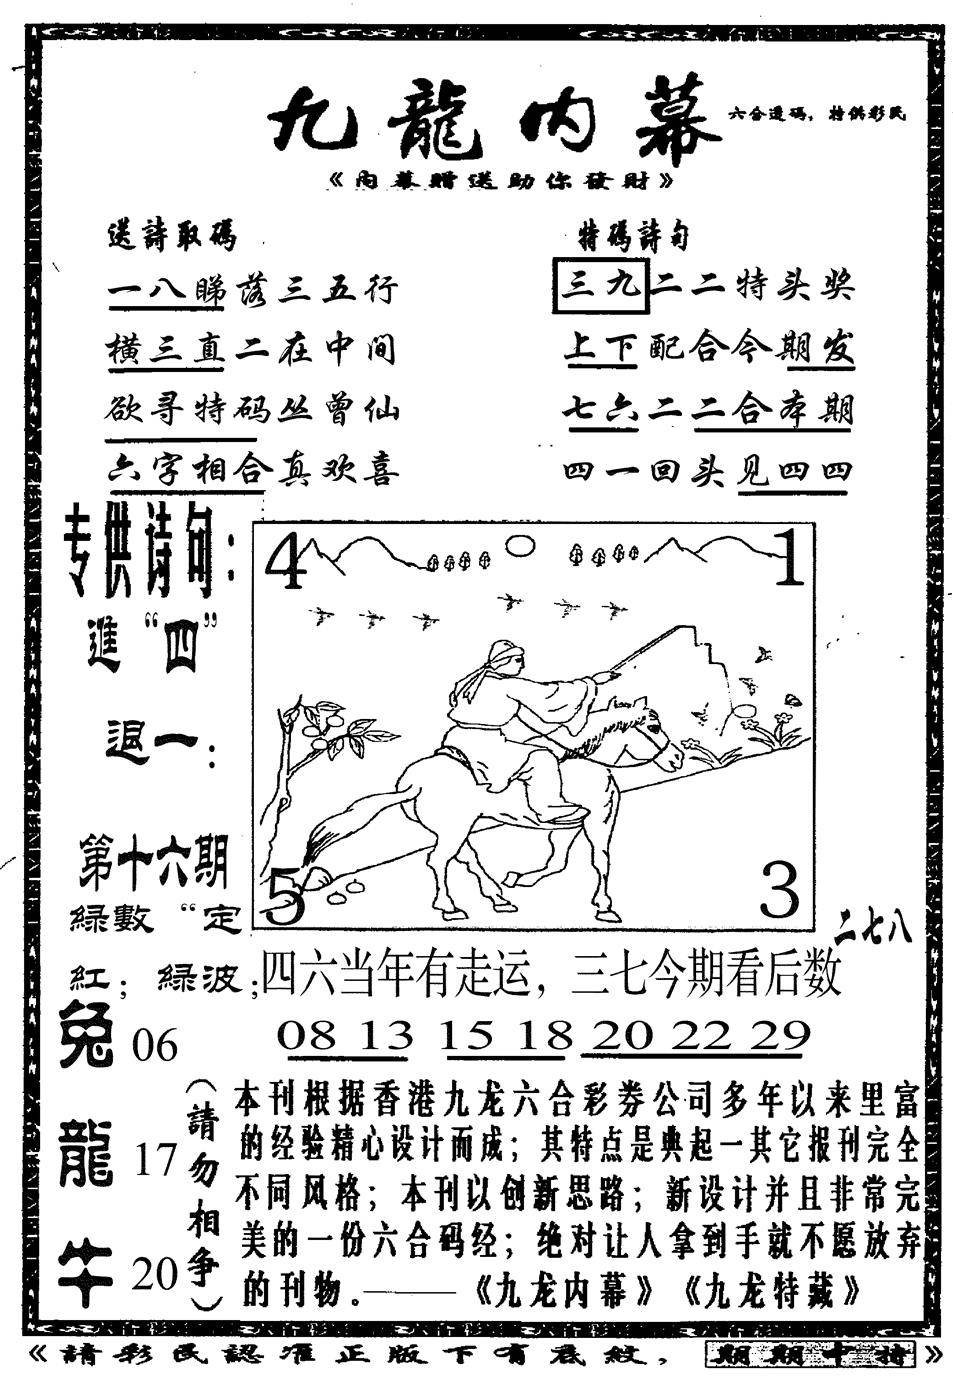 九龍内幕
六合透码，特供彩民
《內幕贈送助你發財》
送詩取碼
一八睇落三五行
横三直二在中间
欲寻特码丛曾仙
六字相合真欢喜
特碼詩句
三九二二特头奖
上下配合今期发
七六二二合本期
四一回头见四四
专供诗句：
進“四”
退一：
第十六期
綠數“定
紅；綠波；
4
1
5
3
二七八
四六当年有走运，三七今期看后数
08 13 15 18 20 22 29
兔 06
龍 17
牛 20
（請勿相争）
本刊根据香港九龙六合彩券公司多年以来里富
的经验精心设计而成；其特点是典起一其它报刊完全
不同风格；本刊以创新思路；新设计并且非常完
美的一份六合码经；绝对让人拿到手就不愿放弃
的刊物。———《九龙内幕》《九龙特藏》
《請彩民認准正版下有底紋，期期中特》